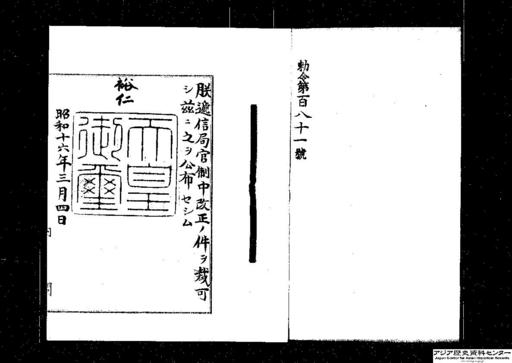 勅令第百八十一號
朕遞信局官制中改正ノ件ヲ裁可
シ茲ニ之ヲ公布セシム
裕仁
天皇
御璽
昭和十六年三月四日
アジア歴史資料センター
Japan Center for Asian Historical Records